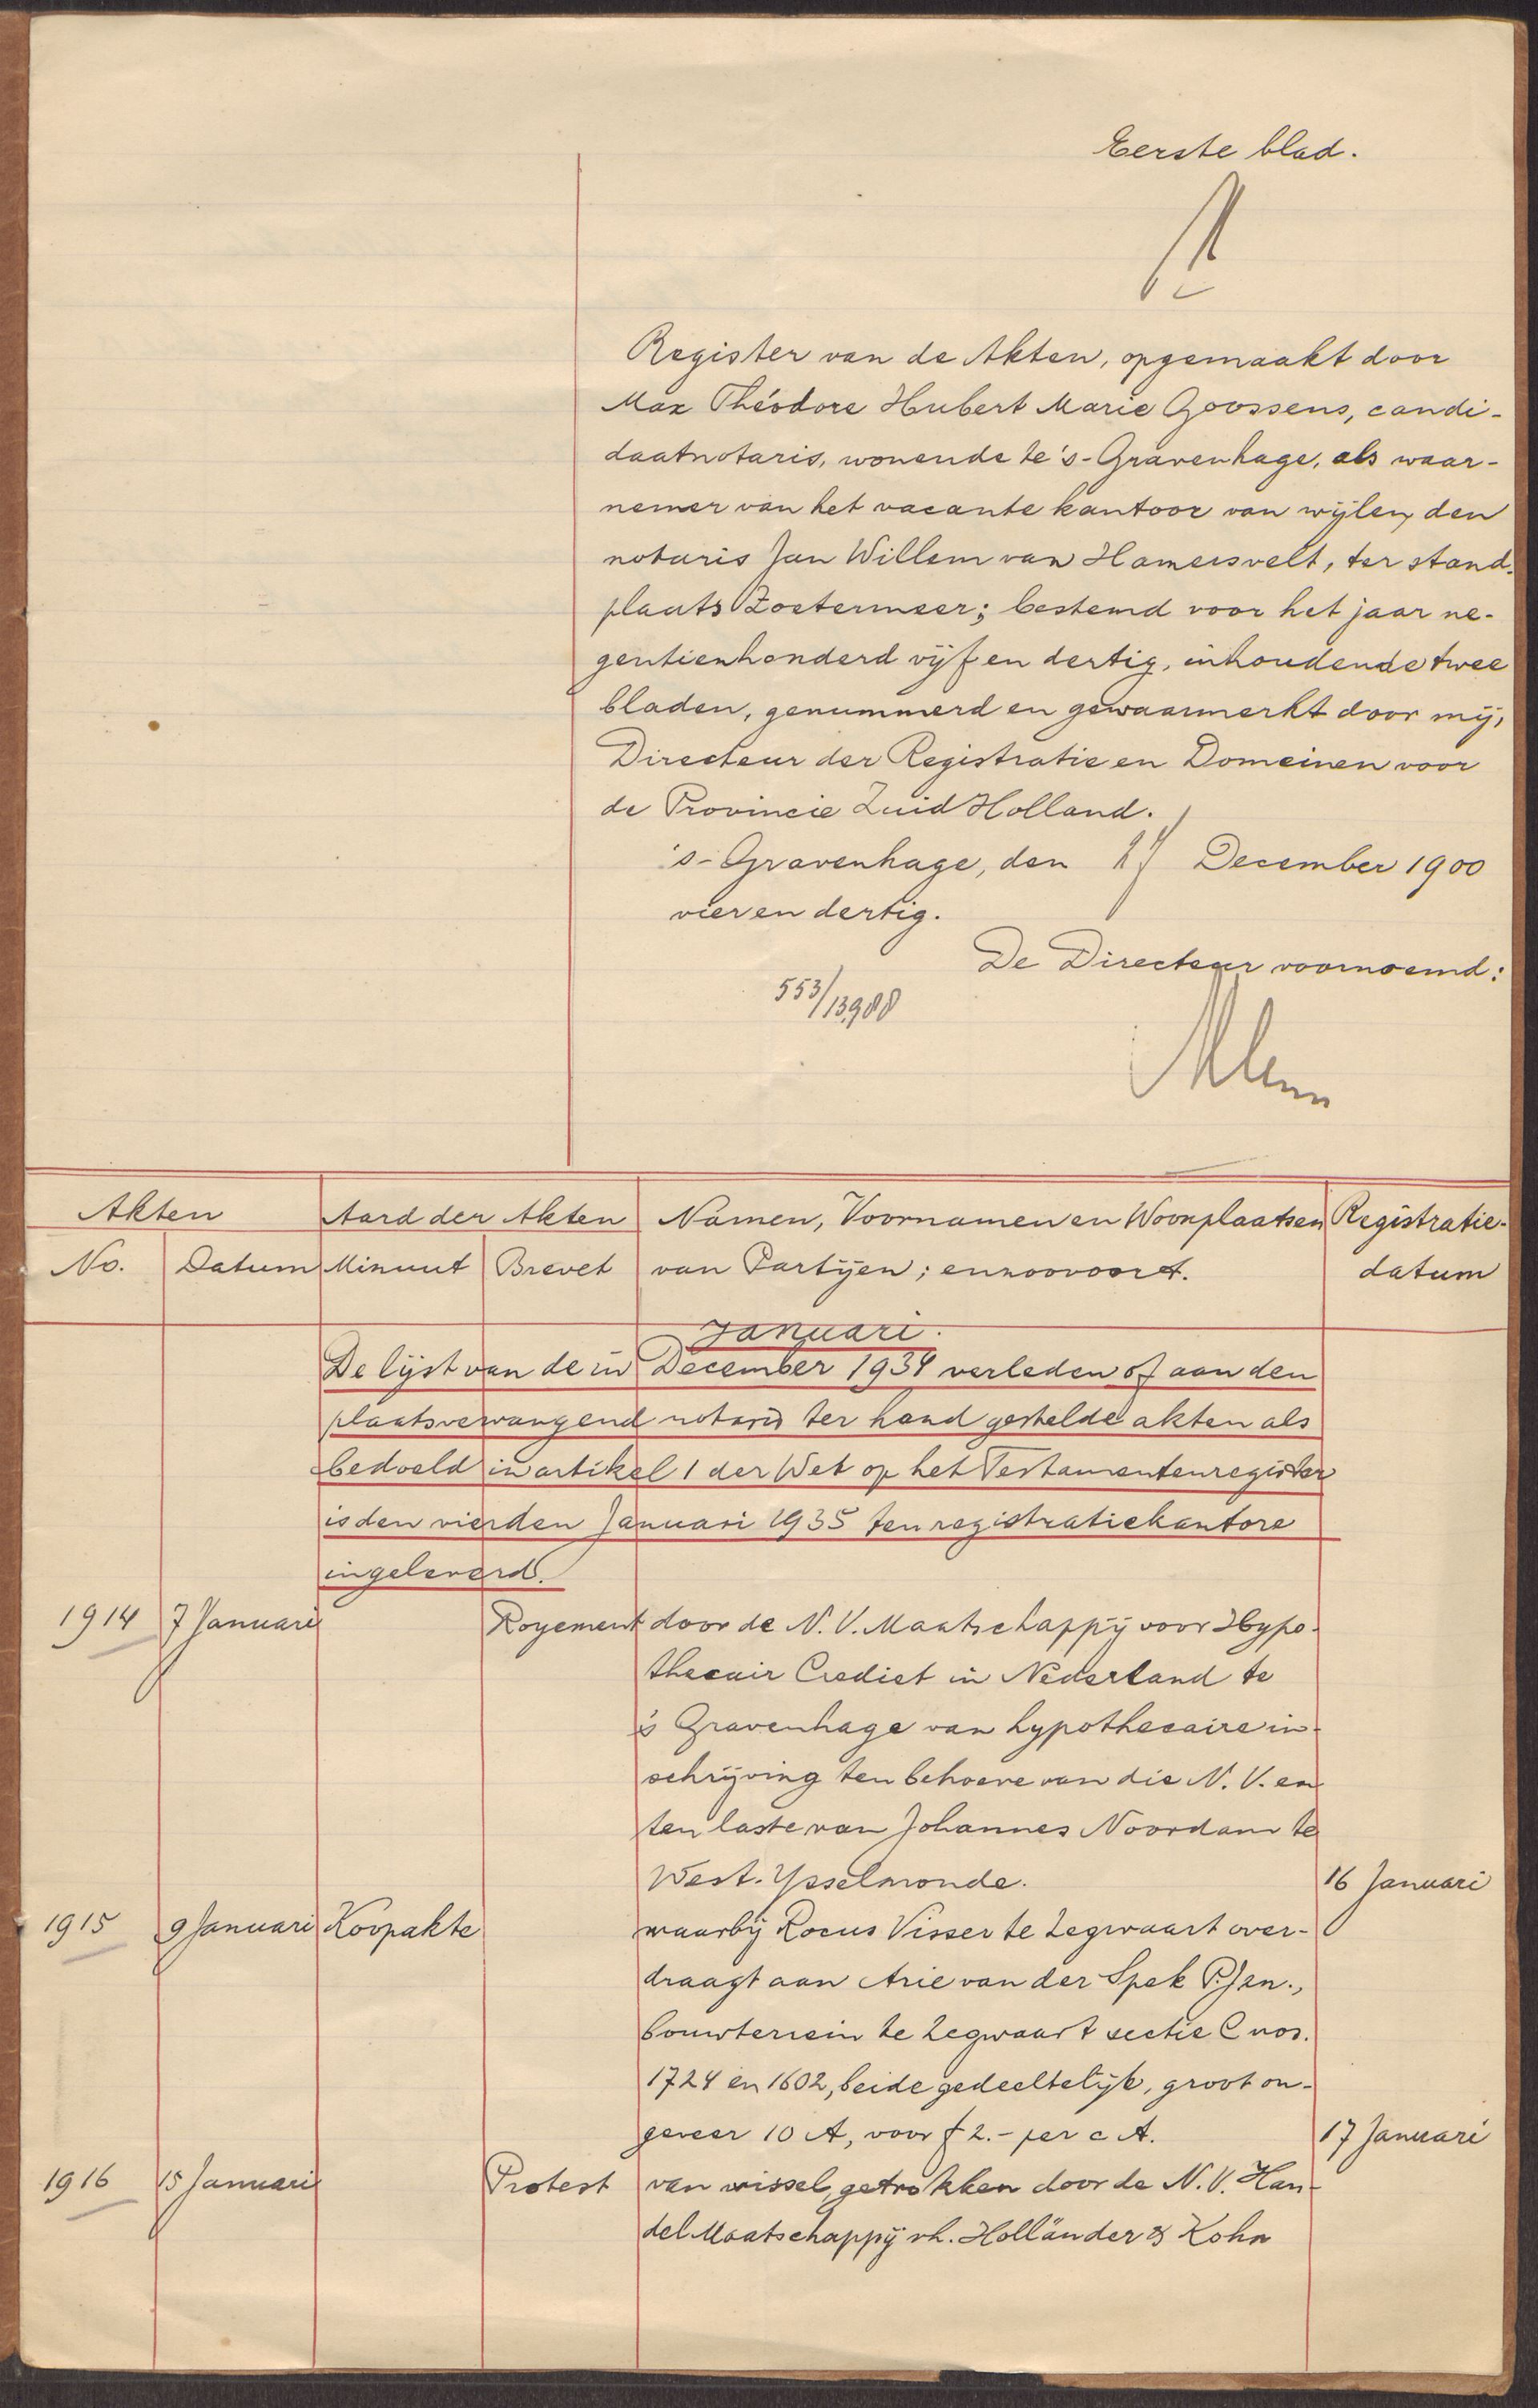 Eerste blad.
Register van de Akten, opgemaakt door
Max Théodore Hubert Marie Goossens, candi-
daatnotaris, wonende te 's-Gravenhage, als waar-
nemer van het vacante kantoor van wijlen den
notaris Jan Willem van Hamersvelt, ter stand-
plaats Zoetermeer; bestemd voor het jaar ne-
gentienhonderd vijf en dertig, inhoudende twee
bladen, genummerd en gewaarmerkt door mij,
Directeur der Registratie en Domeinen voor
de Provincie Zuid Holland.
's-Gravenhage, den 27 December 1900
vier en dertig.
De Directeur voornoemd:
553/13988
Akten Aard der Akten Namen, Voornamen en Woonplaatsen Registratie-
No. Datum Minuut Brevet van Partijen; enzoovoort. datum
Januari.
De lijst van de in December 1934 verleden of aan den
plaatsvervangend notaris ter hand gestelde akten als
bedoeld in artikel 1 der Wet op het Testamentenregister
is den vierden Januari 1935 ten registratiekantore
ingeleverd.
1914 7 Januari Royement door de N.V. Maatschappij voor Hypo-
thecair Crediet in Nederland te
's Gravenhage van hypothecaire in-
schrijving ten behoeve van die N.V. en
ten laste van Johannes Noordam te
West-Ysselmonde. 16 Januari
1915 9 Januari Koopakte waarbij Rocus Visser te Zegwaart over-
draagt aan Arie van der Spek P.Jzn.,
bouwterrein te Zegwaart sectie C nos.
1724 en 1602, beide gedeeltelijk, groot on-
geveer 10 A, voor f 2.- per c A. 17 Januari
1916 15 Januari Protest van wissel, getrokken door de N.V. Han-
del Maatschappij vh. Holländer & Kohn